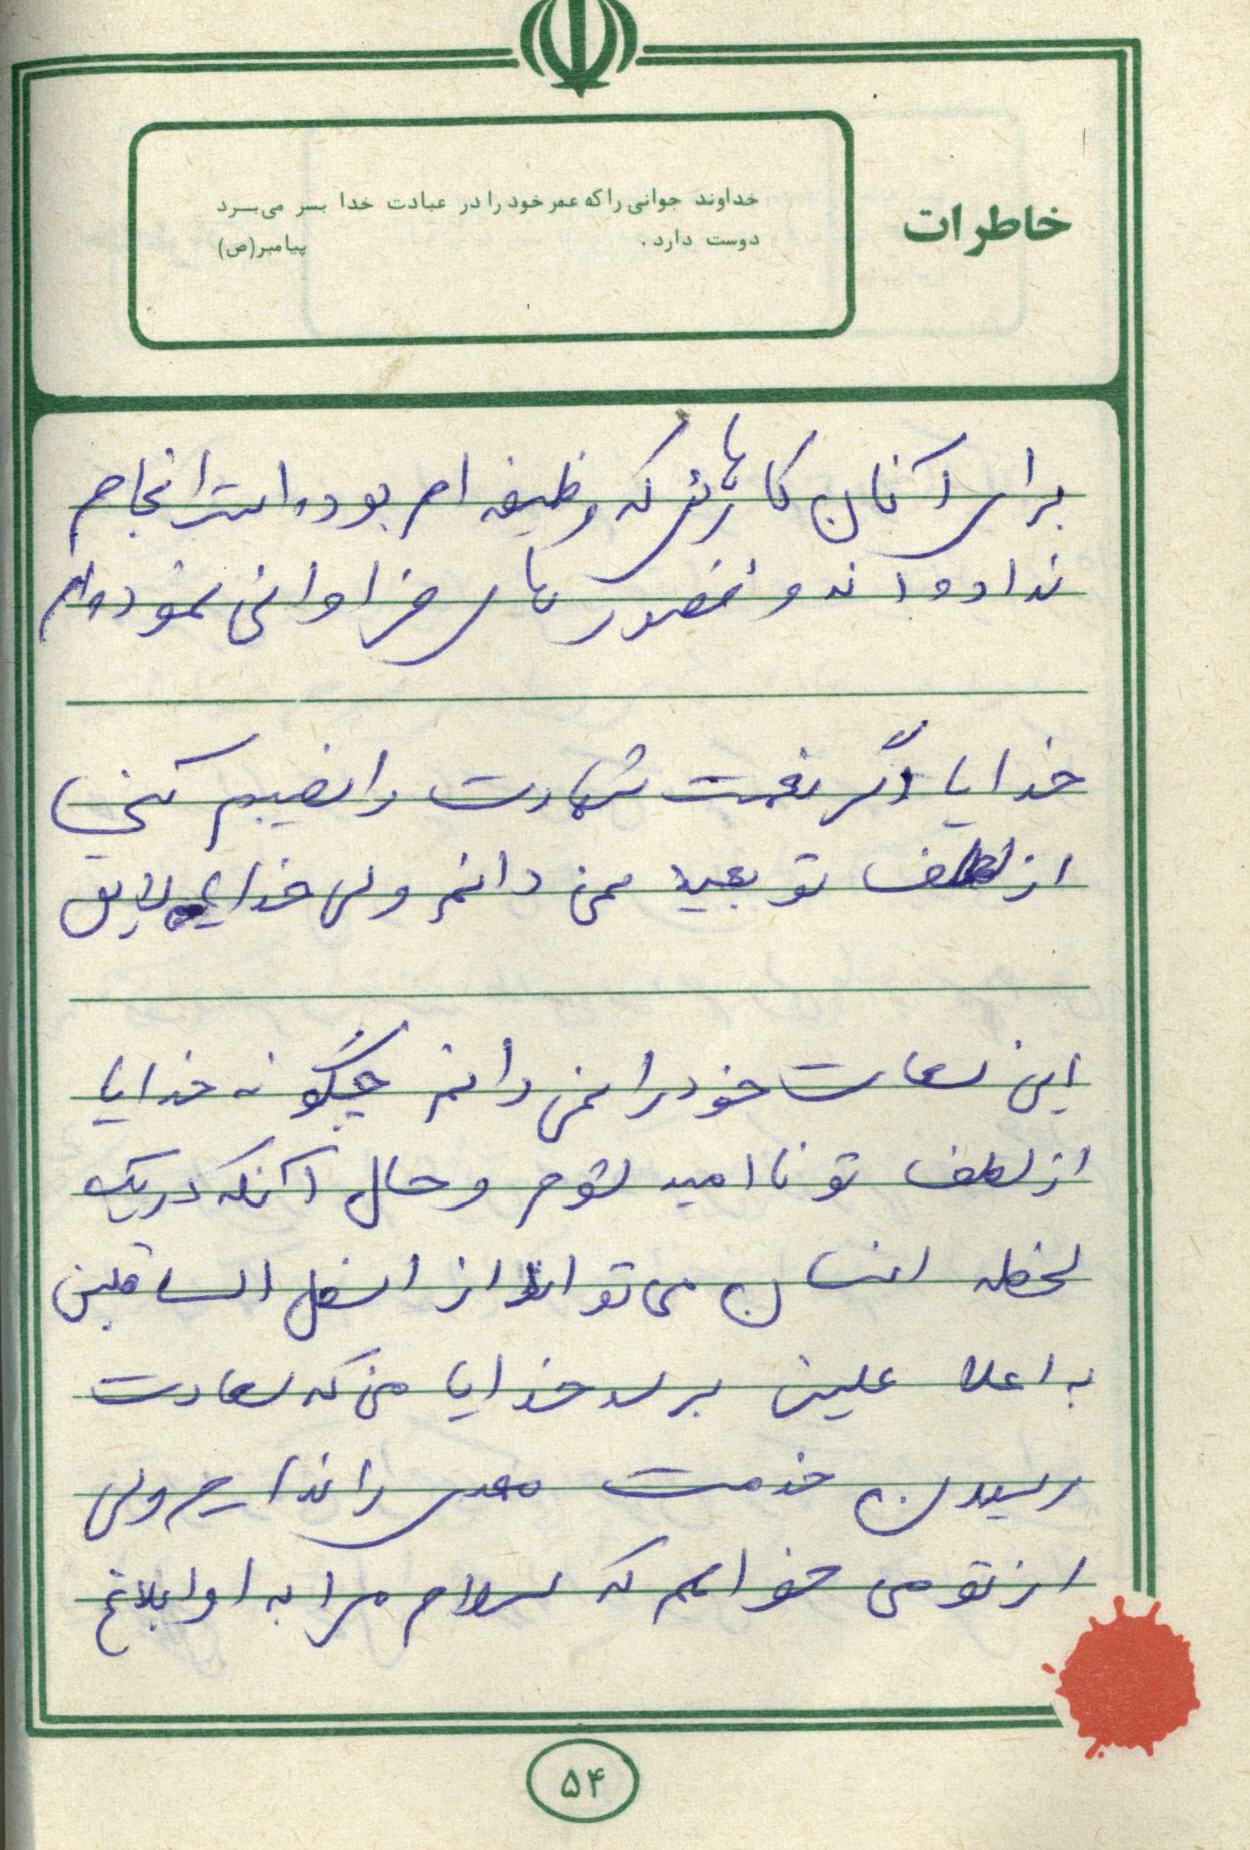 خاطرات
خداوند جوانی را که عمر خود را در عبادت خدا بسر می‌برد
دوست دارد. پیامبر(ص)
برای آنان کارهائی که وظیفه ام بوده است انجام
نداده اند و قصورهای فراوانی نموده ام
خدایا اگر نعمت شهادت را نصیبم کنی
از لطف تو بعید نمی دانم ولی خدایا لایق
این سعات خود را نمی دانم چگونه خدایا
از لطف تو نا امید شوم و حال آنکه در یک
لحظه انسان می تواند از اسفل السافلین
به اعلا علیین برسد خدایا من که سعادت
رسیدن خدمت مهدی را ندارم ولی
از تو می خواهم که سلام مرا به او ابلاغ
۵۴